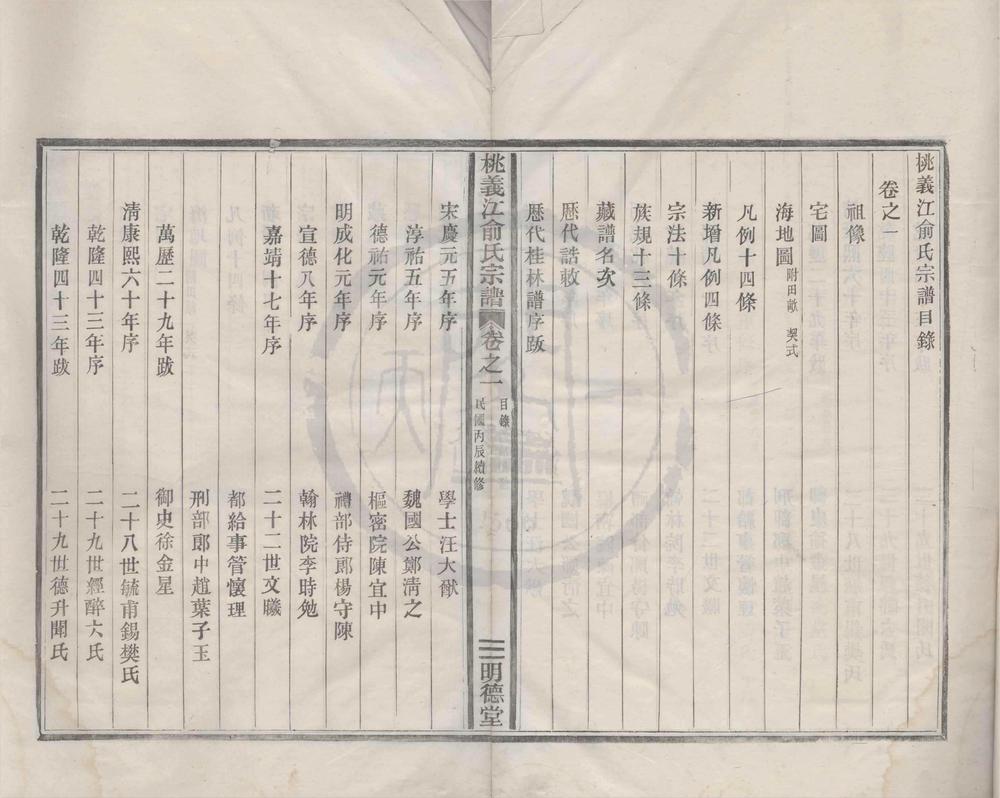 桃義江俞氏宗譜目錄
卷之一
祖像
宅圖
海地圖 附田畝 契式
凡例十四條
新增凡例四條
宗法十條
族規十三條
藏譜名次
歷代誥敕
歷代桂林譜序跋
桃義江俞氏宗譜 卷之一 目錄 民國丙辰續修 明德堂
宋慶元五年序 學士汪大猷
淳祐五年序 魏國公鄭清之
德祐元年序 樞密院陳宜中
明成化元年序 禮部侍郎楊守陳
宣德八年序 翰林院李時勉
嘉靖十七年序 二十二世文曦
都給事管懷理
刑部郎中趙葉子玉
萬歷二十九年跋 御史徐金星
清康熙六十年序 二十八世毓甫錫樊氏
乾隆四十三年序 二十九世經醉六氏
乾隆四十三年跋 二十九世德升聞氏